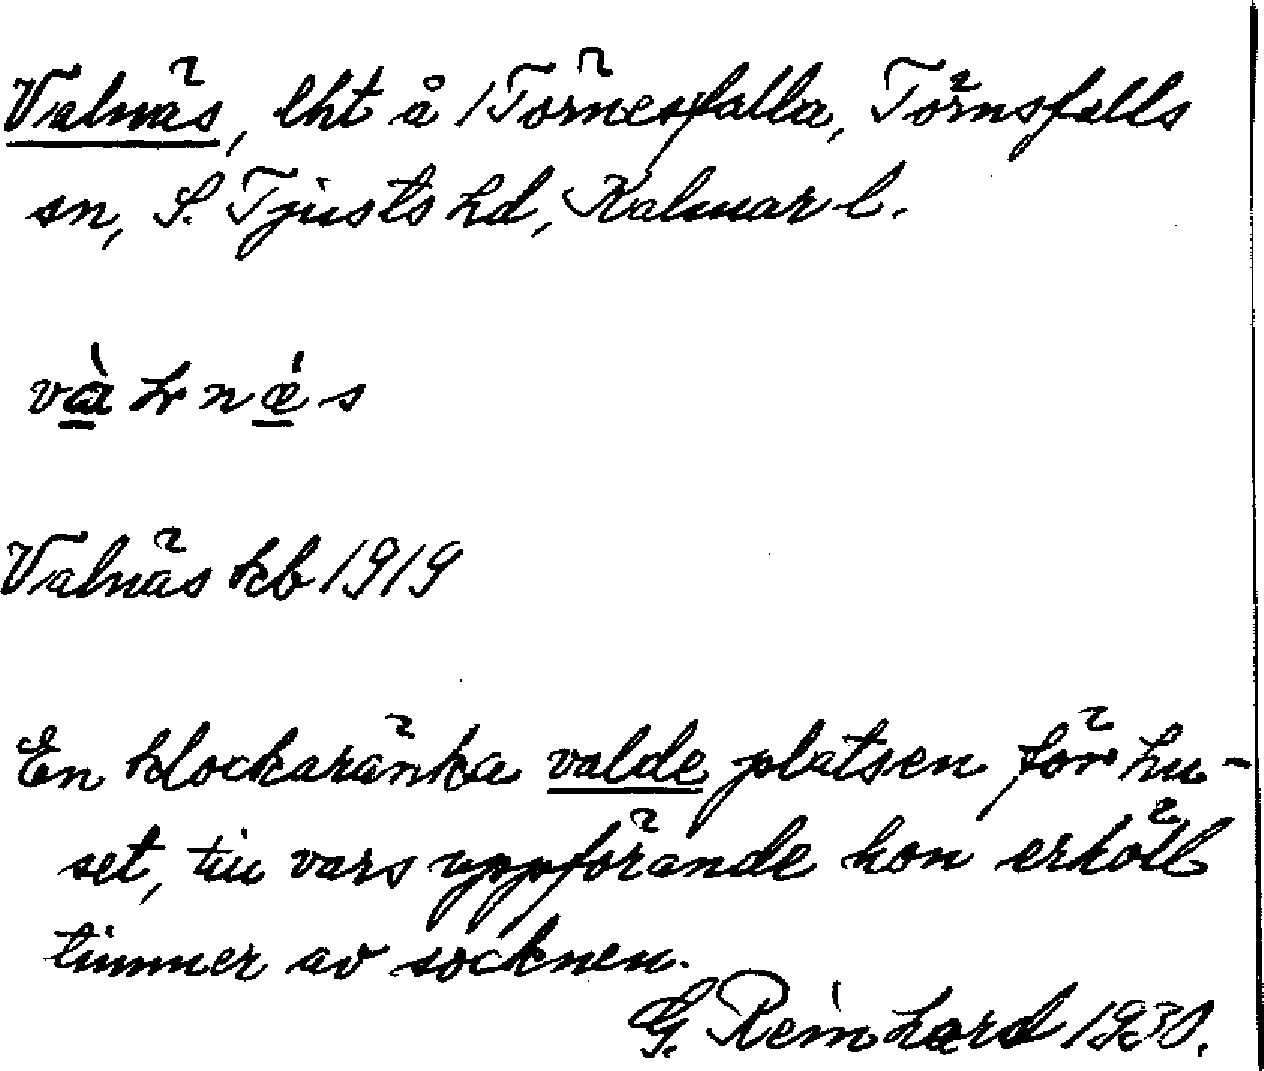 Valnäs, lht å 1 Törnesfalla, Törnsfalls
sn, S. Tjusts hd, Kalmar l.
Valnäs kb 1919
En klockaränka valde platsen för hu-
set, till vars uppförande hon erhöll
timmer av socknen.
G. Reinhard 1930.